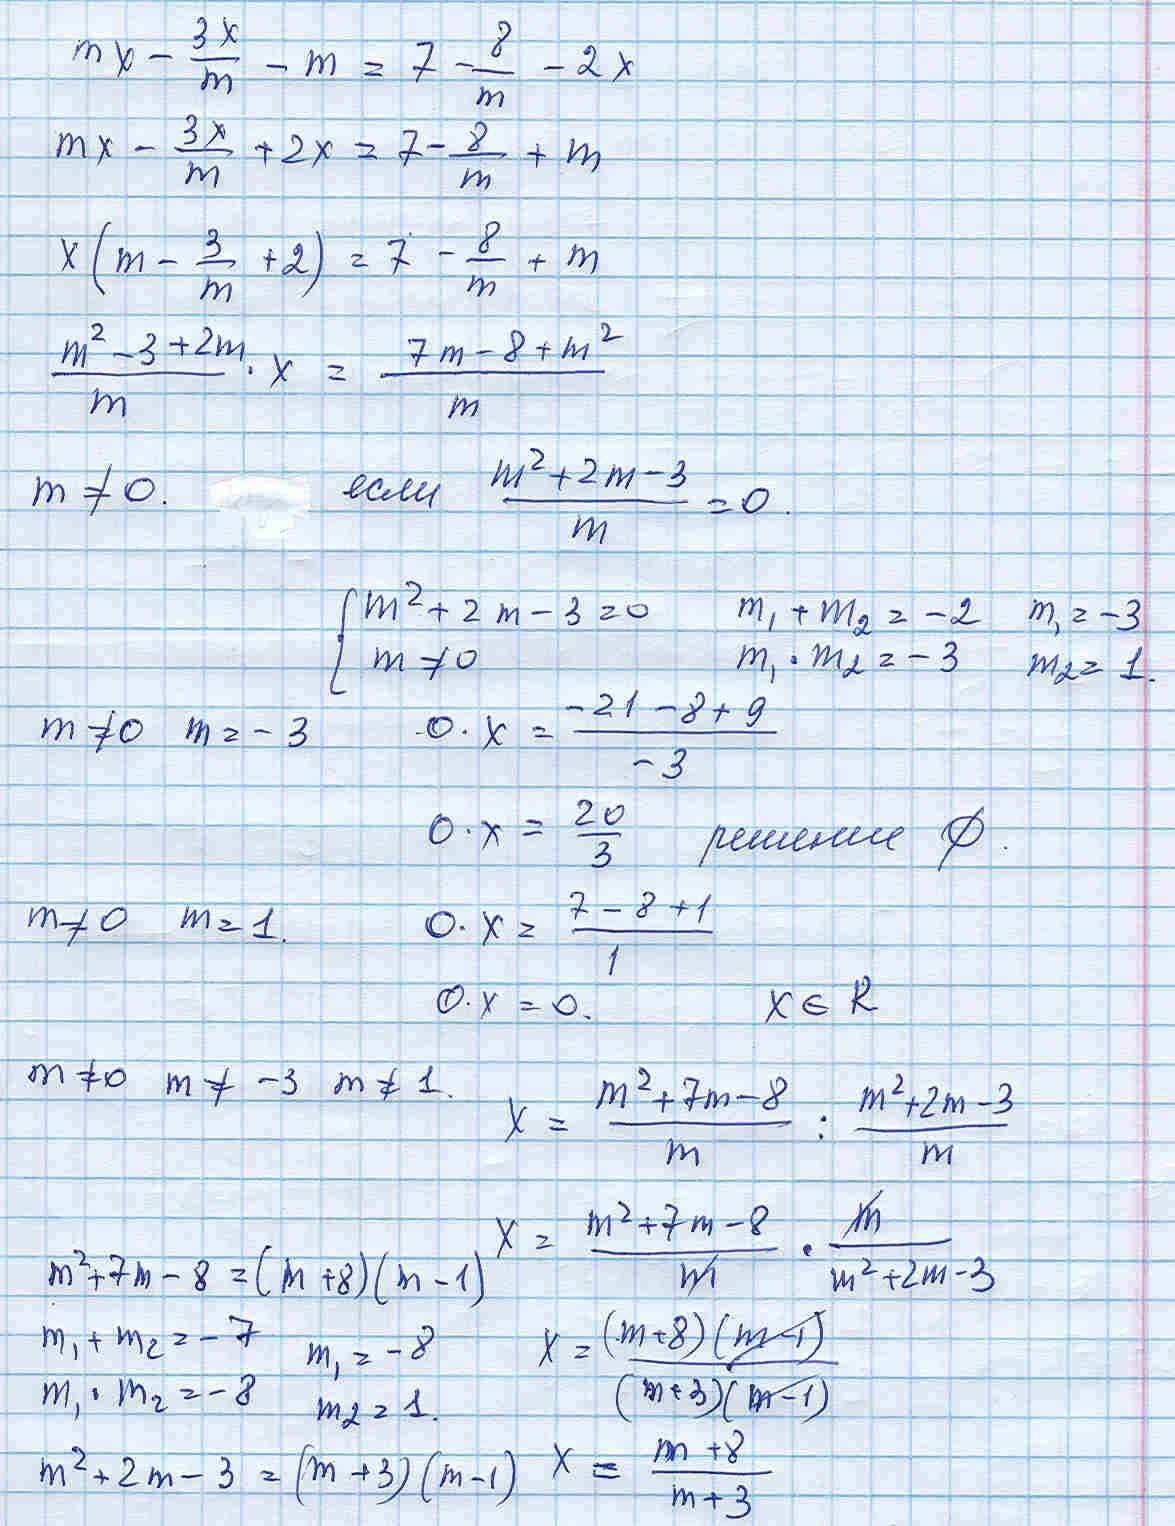 mx - 3x/m - m = 7 - 8/m - 2x
mx - 3x/m + 2x = 7 - 8/m + m
x(m - 3/m + 2) = 7 - 8/m + m
(m² - 3 + 2m)/m · x = (7m - 8 + m²)/m
m ≠ 0. если (m² + 2m - 3)/m = 0.
{ m² + 2m - 3 = 0 m₁ + m₂ = -2 m₁ = -3
m ≠ 0 m₁ · m₂ = -3 m₂ = 1.
m ≠ 0 m = -3 0 · x = (-21 - 8 + 9)/(-3)
0 · x = 20/3 решение ∅.
m ≠ 0 m = 1. 0 · x = (7 - 8 + 1)/1
0 · x = 0. x ∈ R
m ≠ 0 m ≠ -3 m ≠ 1. x = (m² + 7m - 8)/m : (m² + 2m - 3)/m
x = (m² + 7m - 8)/m · m/(m² + 2m - 3)
m² + 7m - 8 = (m + 8)(m - 1)
m₁ + m₂ = -7 m₁ = -8 x = (m + 8)(m - 1)/(m + 3)(m - 1)
m₁ · m₂ = -8 m₂ = 1.
m² + 2m - 3 = (m + 3)(m - 1) x = (m + 8)/(m + 3)